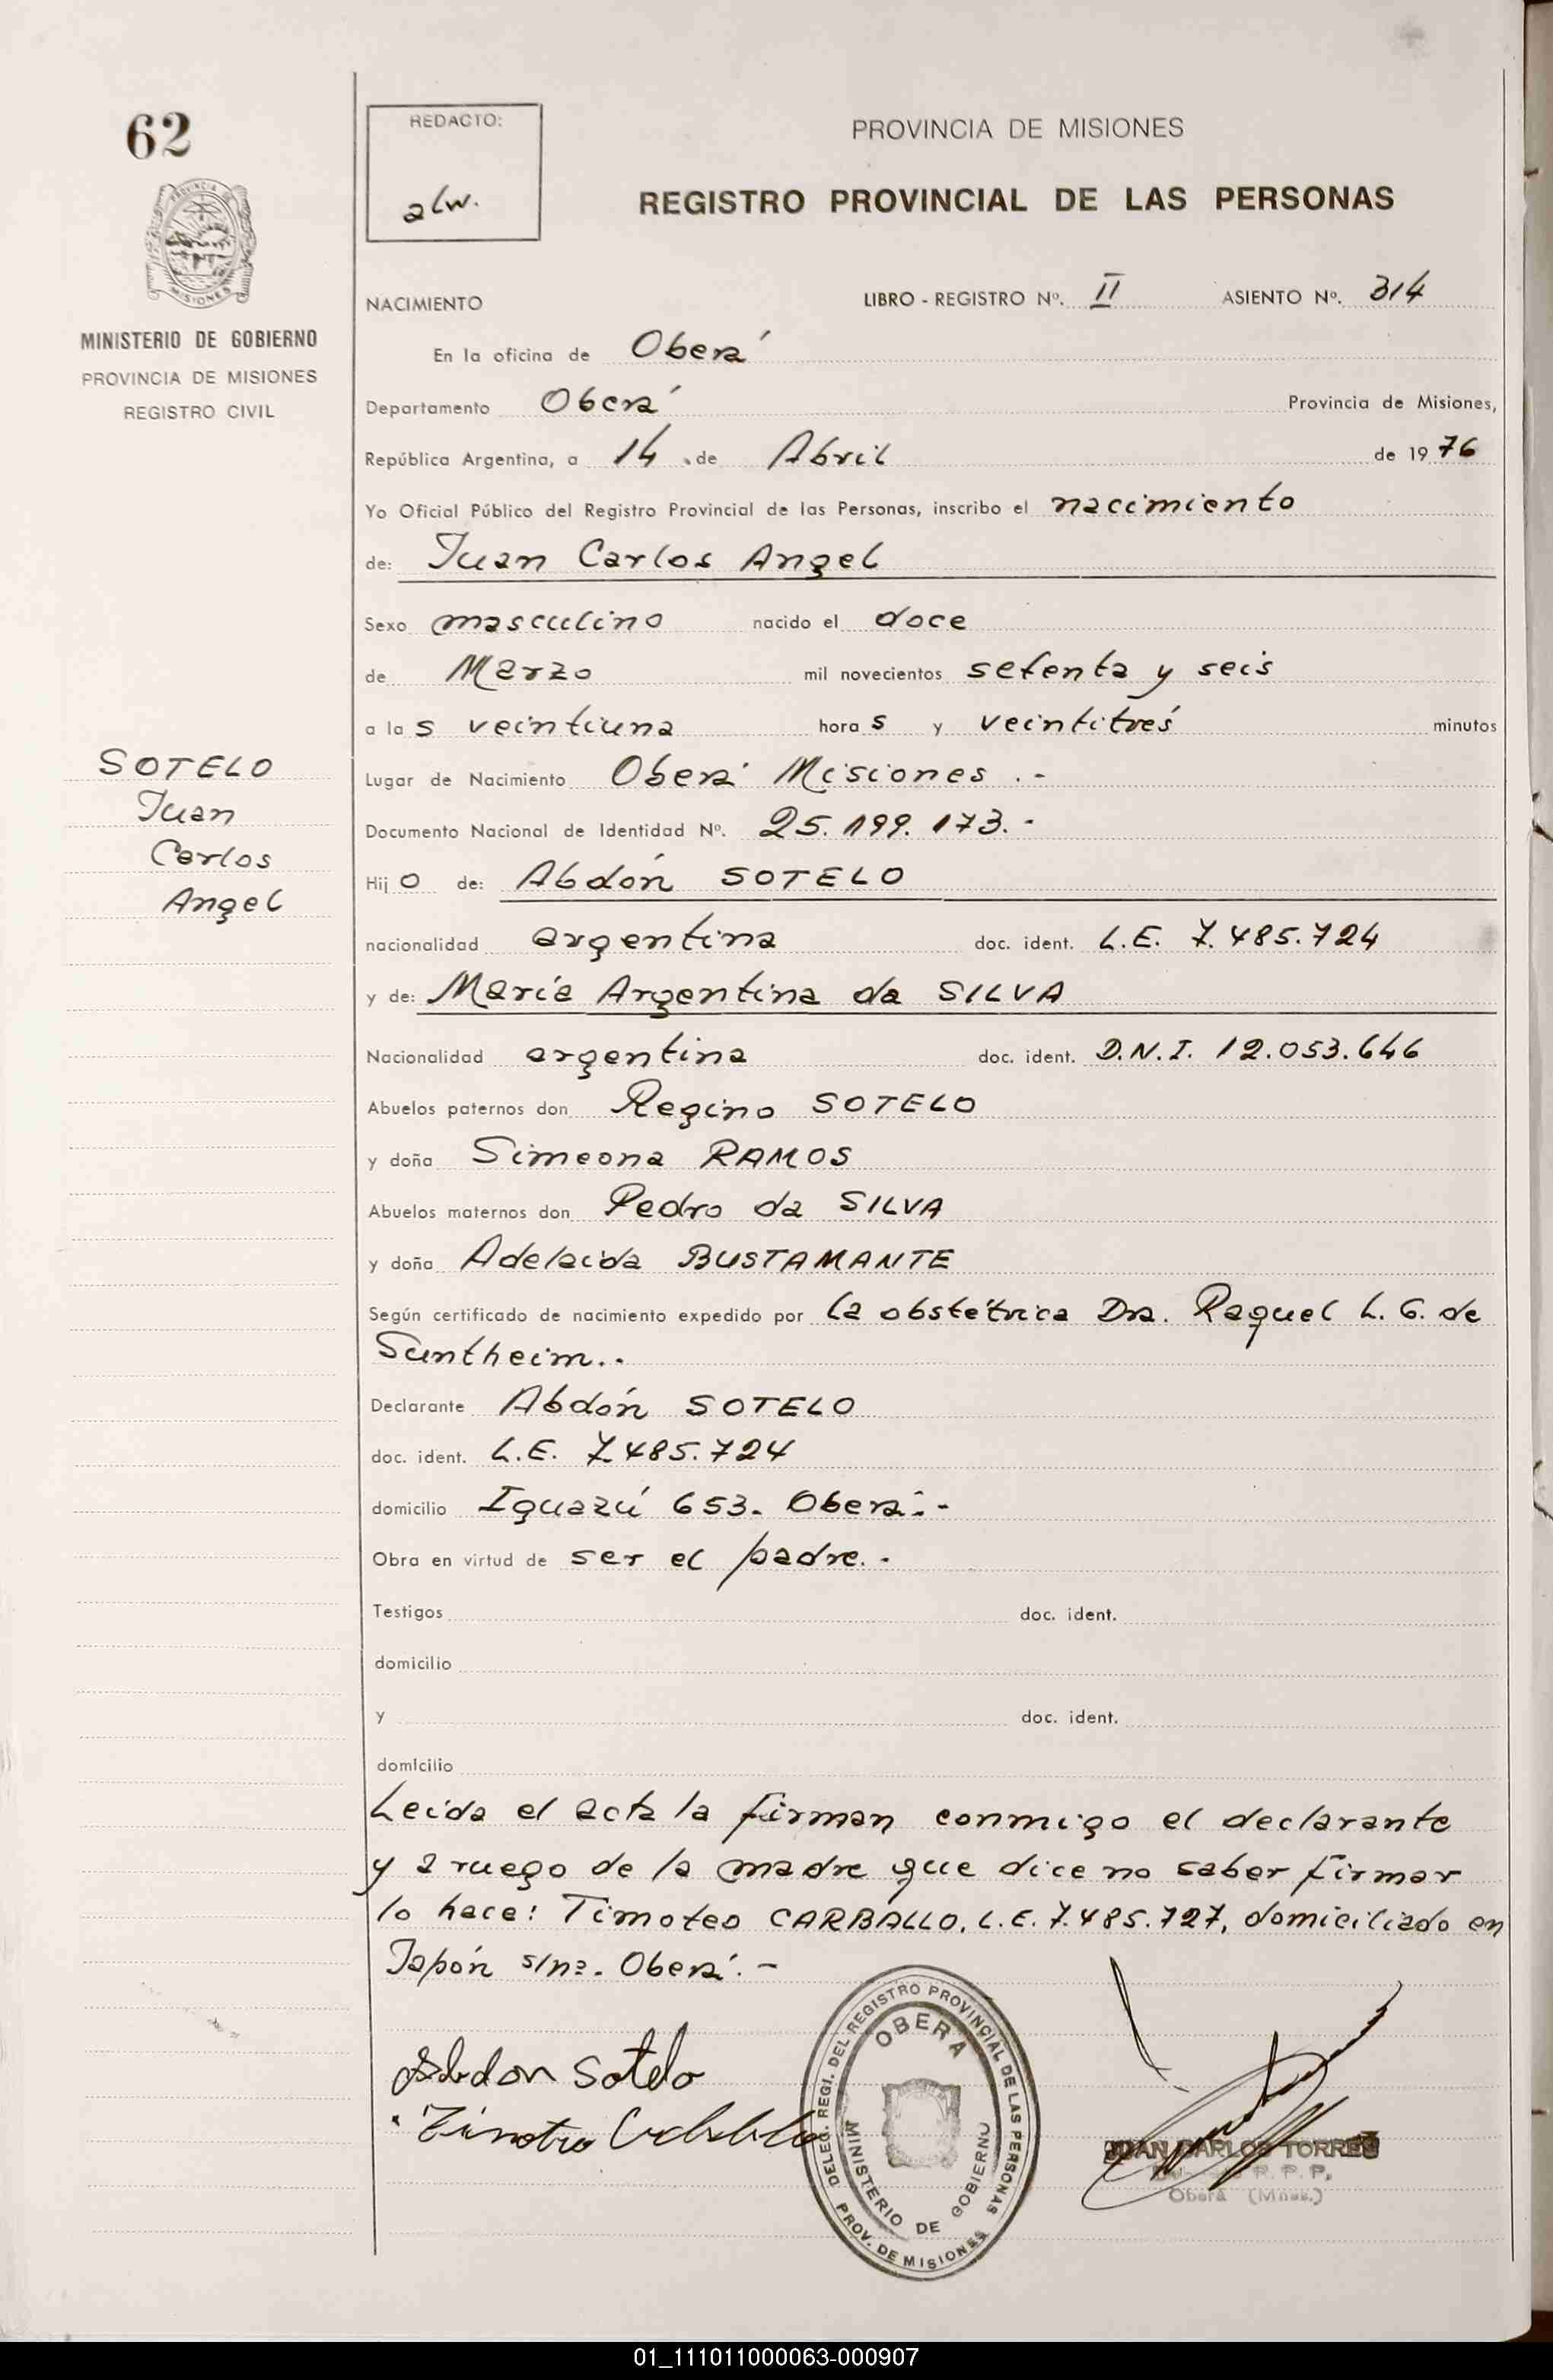 62
REDACTO:
alw.
PROVINCIA DE MISIONES
REGISTRO PROVINCIAL DE LAS PERSONAS
PROVINCIA DE
MISIONES
MINISTERIO DE GOBIERNO
PROVINCIA DE MISIONES
REGISTRO CIVIL
NACIMIENTO LIBRO - REGISTRO Nº. II ASIENTO Nº. 314
En la oficina de Oberá
Departamento Oberá Provincia de Misiones,
República Argentina, a 14 de Abril de 1976
Yo Oficial Público del Registro Provincial de las Personas, inscribo el nacimiento
de: Juan Carlos Angel
Sexo masculino nacido el doce
de Marzo mil novecientos setenta y seis
a las veintiuna horas y veintitrés minutos
SOTELO
Juan
Carlos
Angel
Lugar de Nacimiento Oberá Misiones .-
Documento Nacional de Identidad Nº. 25.199.173.-
Hijo de: Abdón SOTELO
nacionalidad argentina doc. ident. L.E. 7.485.724
y de: María Argentina da SILVA
Nacionalidad argentina doc. ident. D.N.I. 12.053.646
Abuelos paternos don Regino SOTELO
y doña Simeona RAMOS
Abuelos maternos don Pedro da SILVA
y doña Adelaida BUSTAMANTE
Según certificado de nacimiento expedido por la obstétrica Dra. Raquel L. G. de
Suntheim..
Declarante Abdón SOTELO
doc. ident. L.E. 7.485.724
domicilio Iguazú 653. Oberá.-
Obra en virtud de ser el padre.-
Testigos doc. ident.
domicilio
y doc. ident.
domicilio
Leida el acta la firman conmigo el declarante
y a ruego de la madre que dice no saber firmar
lo hace: Timoteo CARBALLO, L.E. 7.485.727, domiciliado en
Japón s/nº. Oberá.-
Abdon Sotelo
DELEG. REGI. DEL REGISTRO PROVINCIAL DE LAS PERSONAS
OBERA
MINISTERIO DE GOBIERNO
PROV. DE MISIONES
JUAN CARLOS TORRES
R. P. P.
Oberá (Mnes.)
01_111011000063-000907